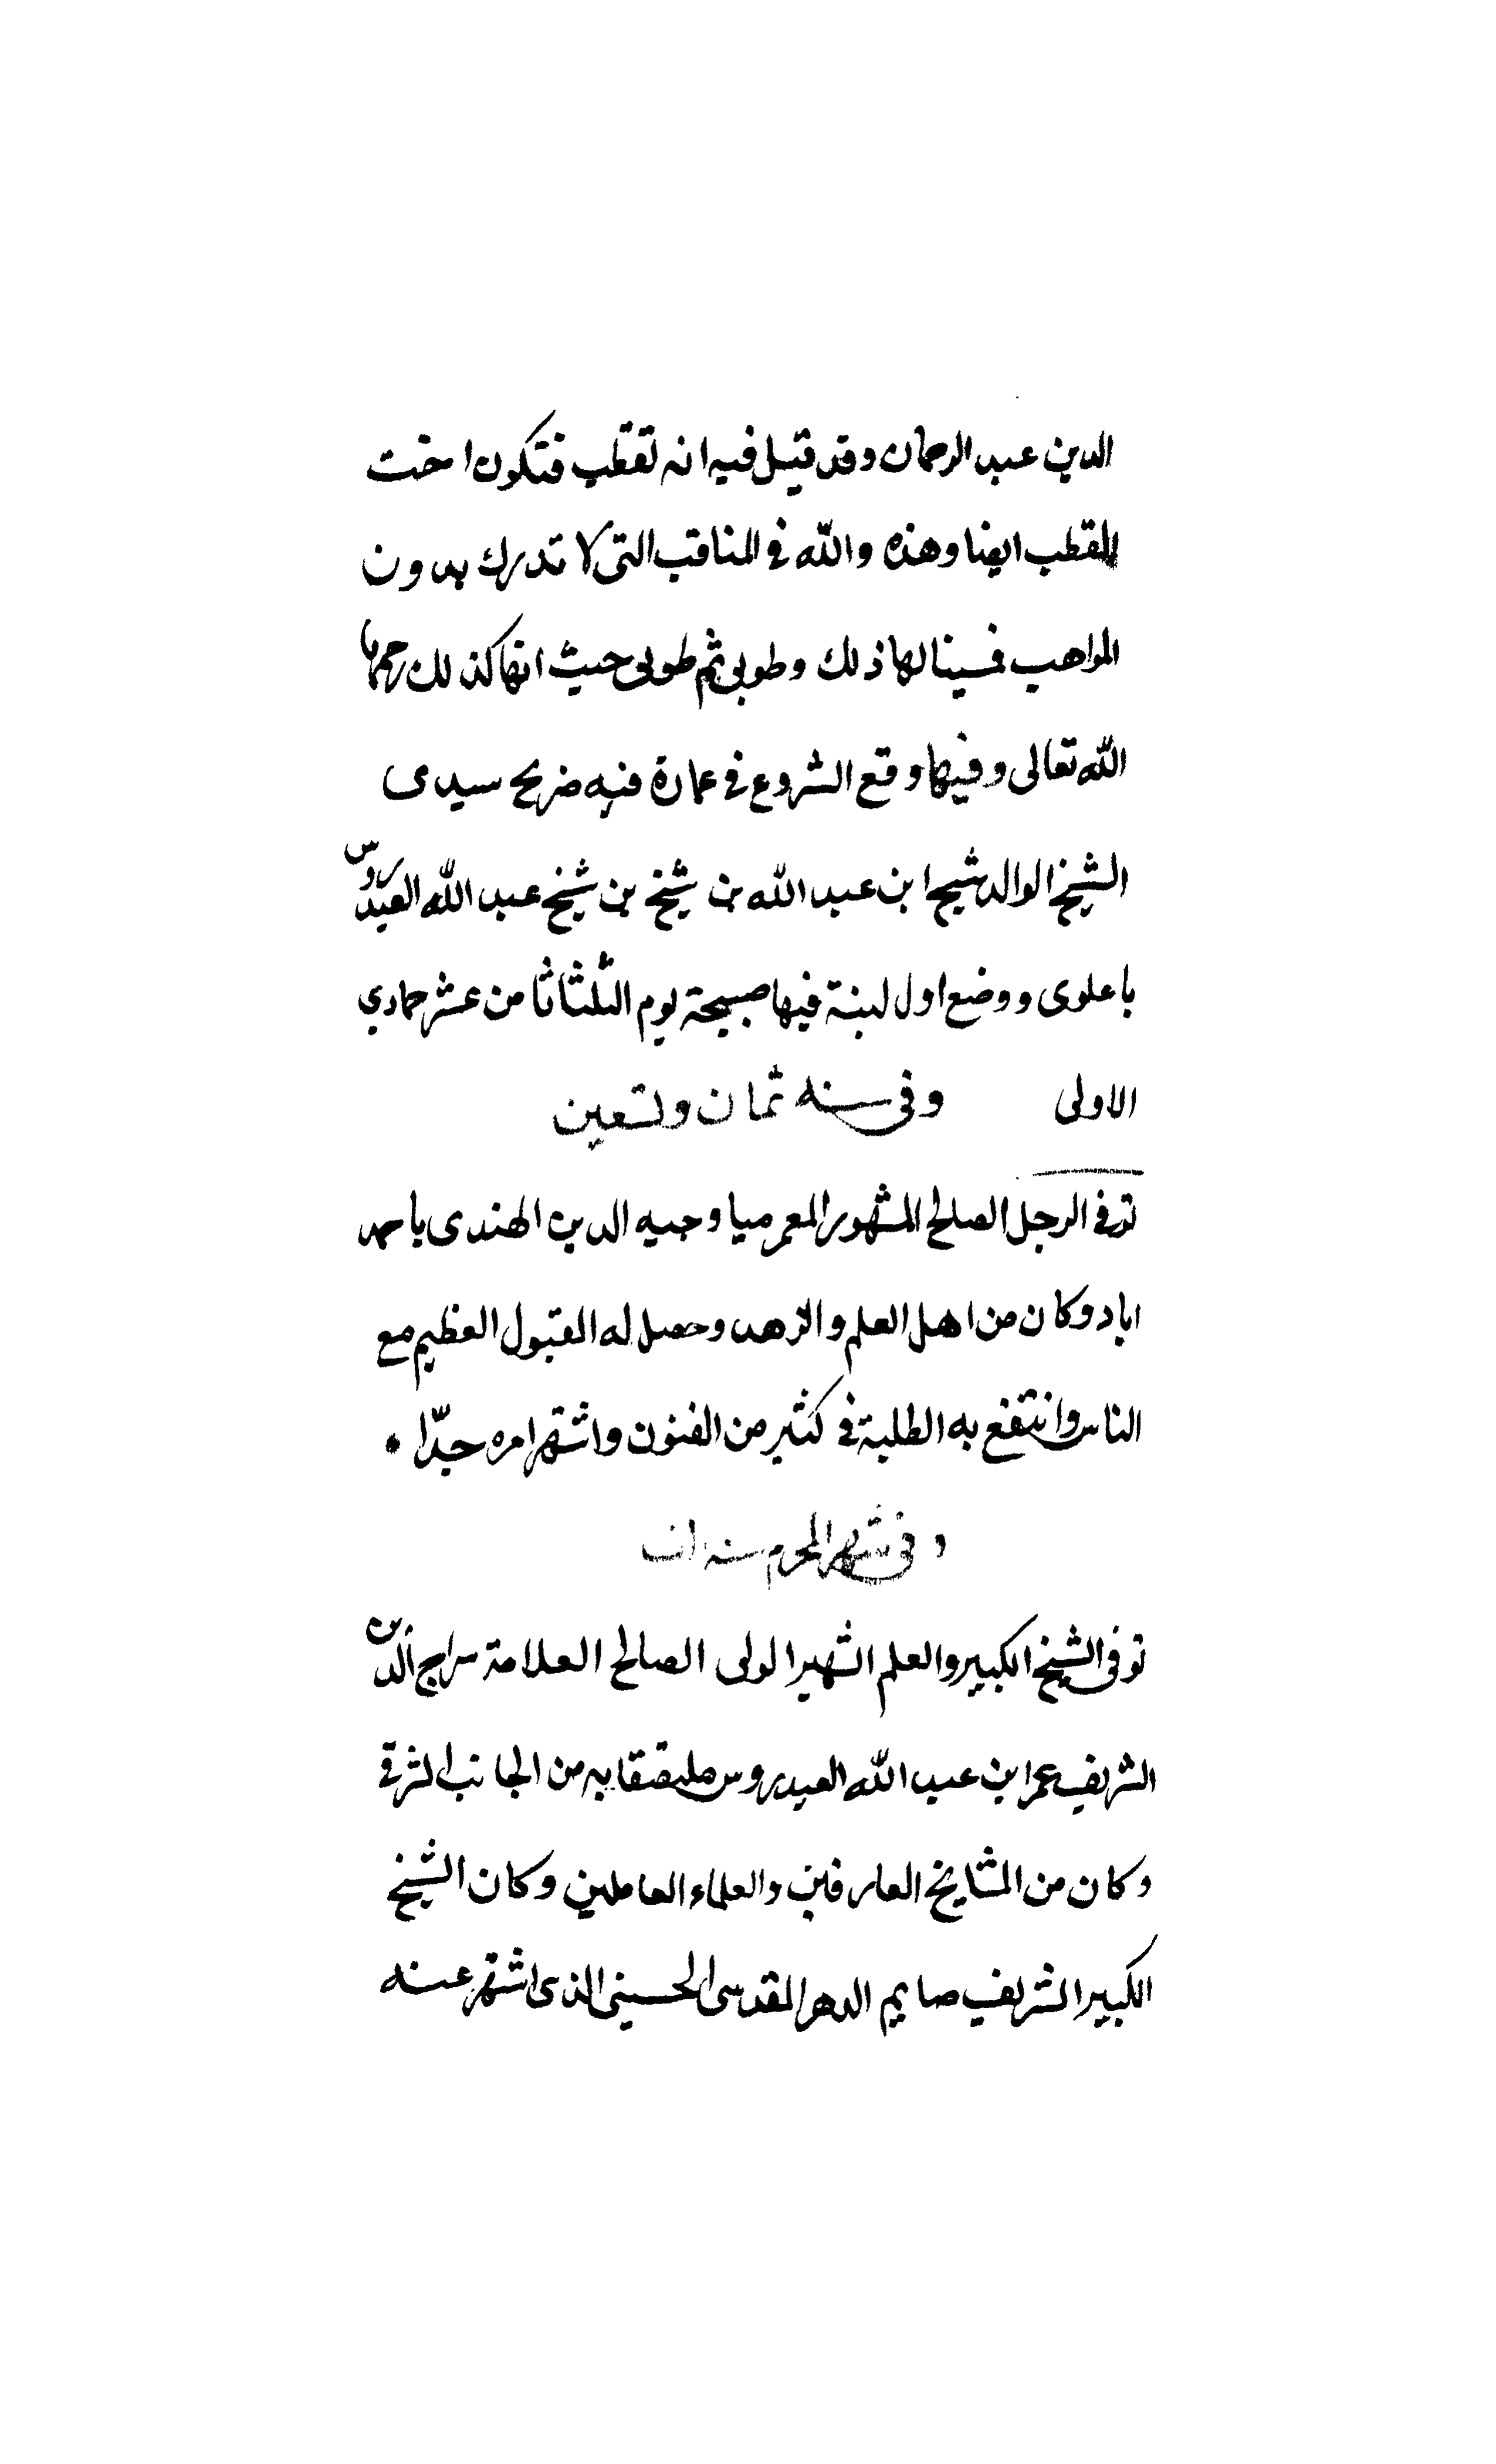 الدين عبد الرحمان وقد قيل فيه انه تقطب فتكون اخت
للقطب ايضا وهذه والله في المناقب التي لا تدرك بدون
المواهب فهينا لها ذلك وطوبى ثم طوبى حيث انها كذلك رحمها
الله تعالى وفيها وقع الشروع في عمارة قبه ضريح سيدى
الشيخ الوالد شيخ ابن عبد الله بن شيخ بن شيخ عبد الله العيدروس
باعلوى ووضع اول لبنة فيها صبيحة يوم الثلثا ثامن عشر جمادي
الاولى وفي سنه ثمان وتسعين
توفي الرجل الصالح المشهور المعمر ميا وجيه الدين الهندى باحمد
اباد وكان من اهل العلم والزهد وحصل له القبول العظيم مع
الناس وانتفع به الطلبة في كثير من الفنون واشتهر امره جدّا •
وفي شهر المحرم سنه الف
توفى الشيخ الكبير والعلم الشهير الولى الصالح العلامة سراج الدين
الشريف عمر ابن عبد الله العيدروس ملتصقا به من الجانب الشرقي
وكان من المشايخ العارفين والعلماء العاملين وكان الشيخ
الكبير الشريف صايم الدهر المقدسى الحسينى الذى اشتهر عنه